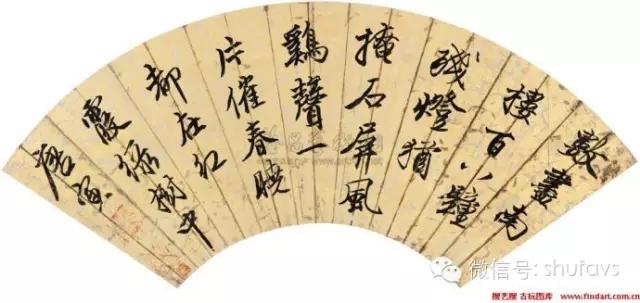 數盡南
樓百八鐘
殘燈猶
掩石屏風
鷄聲一
片催春曉
都在紅
霞綠樹中
唐寅
微信号: shufavs
搜艺搜 古玩图库 www.findart.com.cn